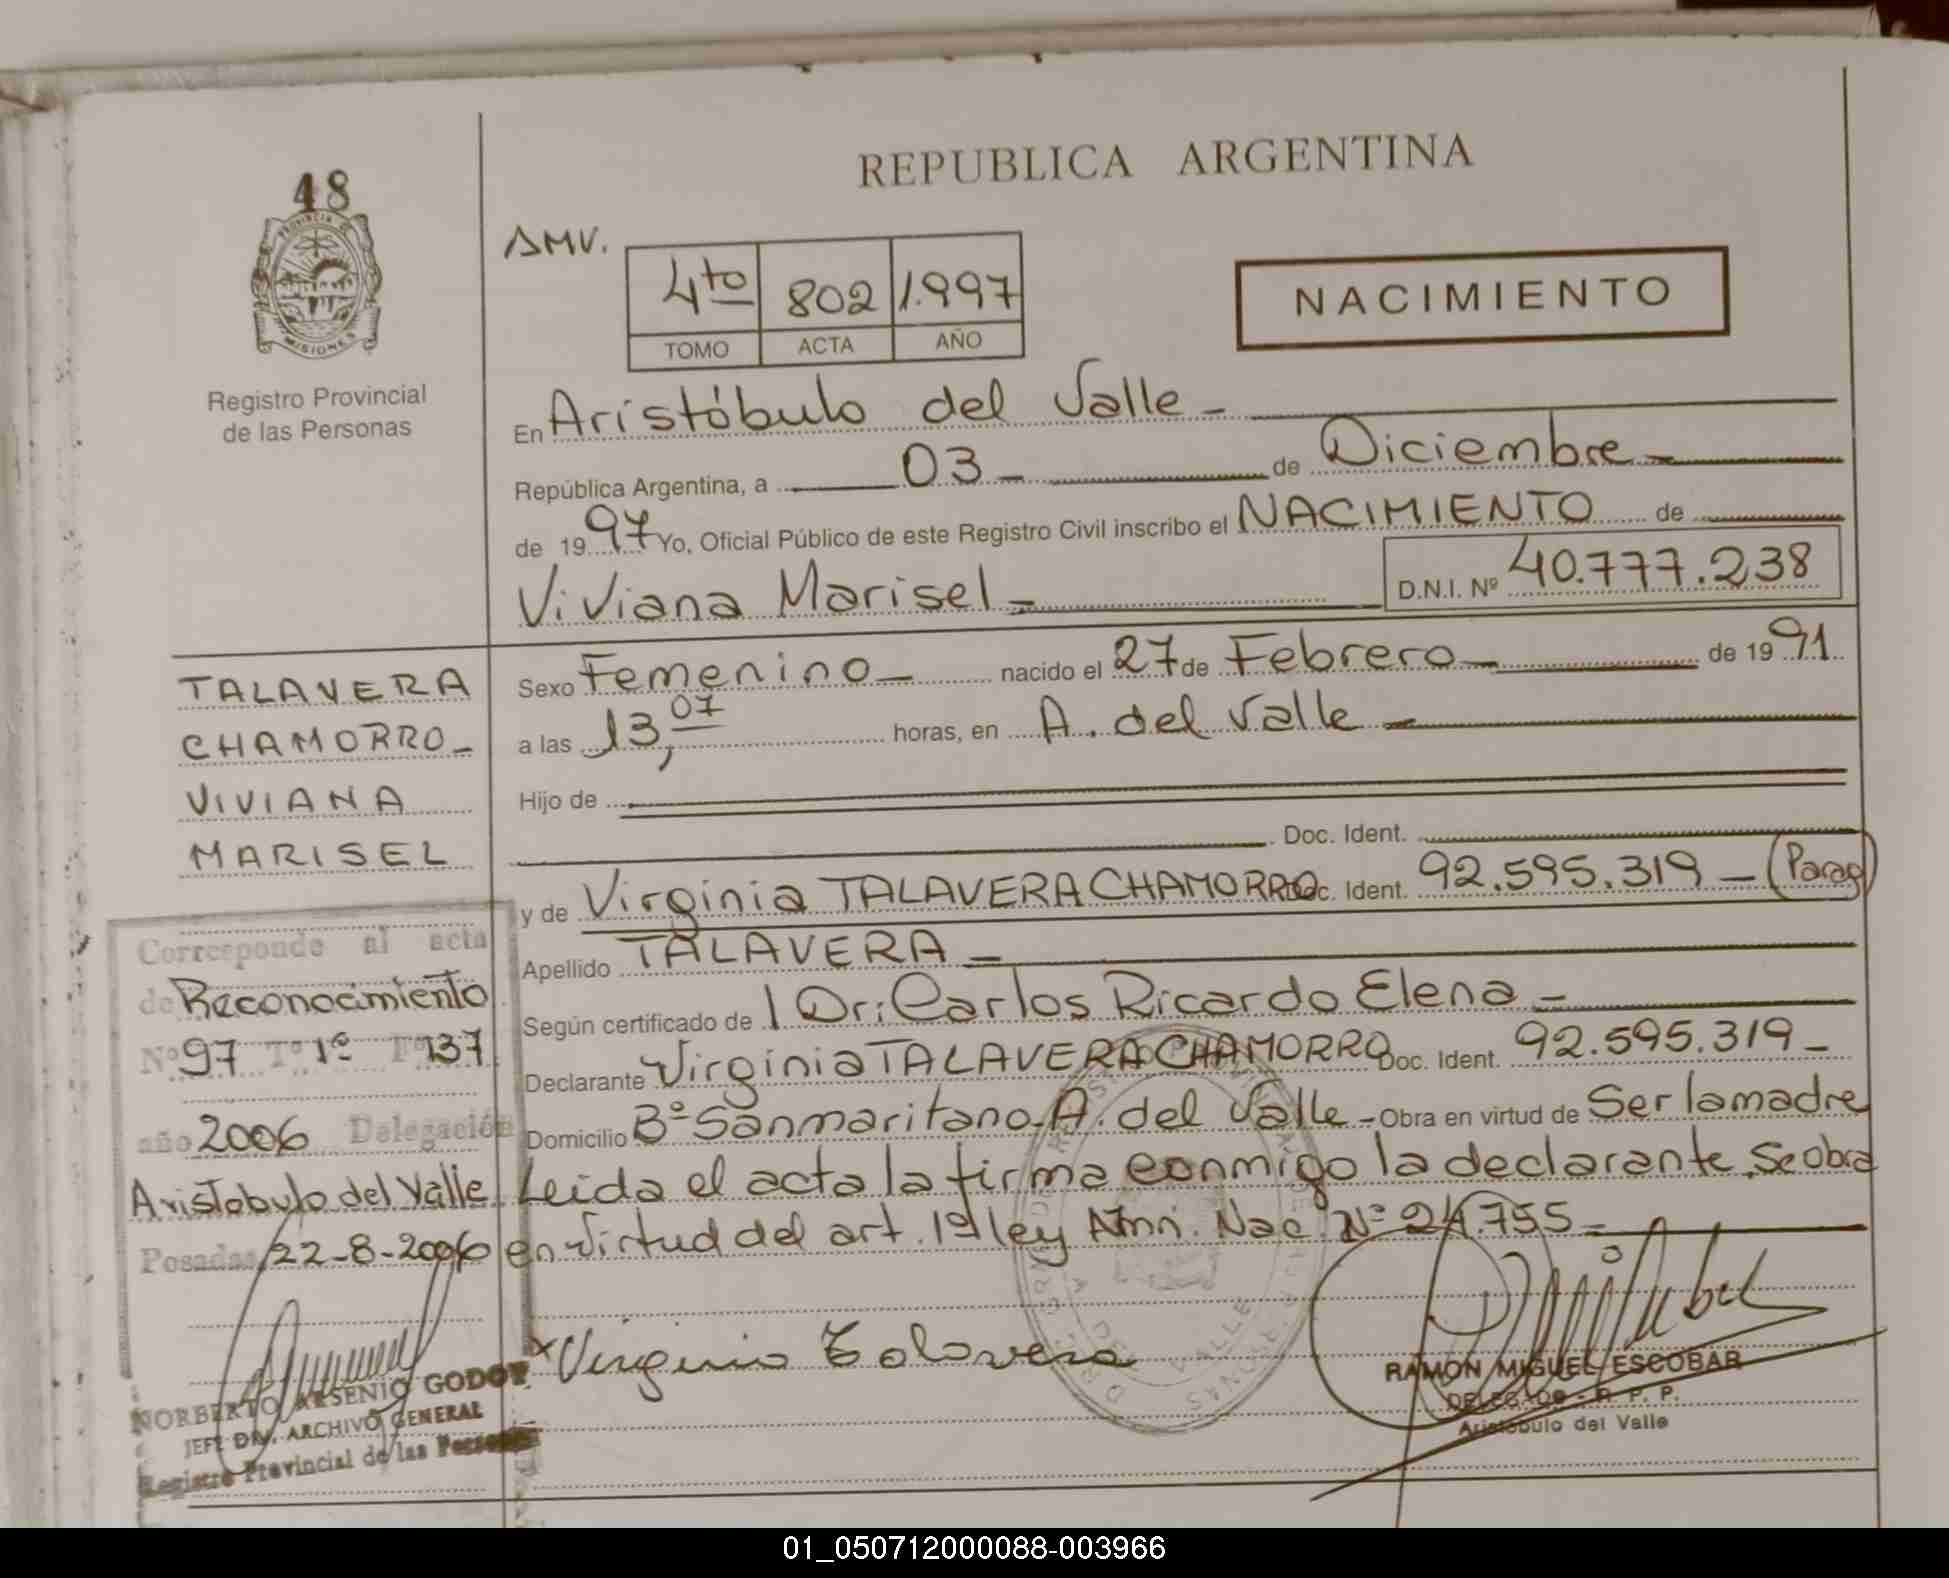 48
PROVINCIA DE
MISIONES
Registro Provincial
de las Personas
REPUBLICA ARGENTINA
AMV.
4to 802 1.997
TOMO ACTA AÑO
NACIMIENTO
En Aristóbulo del Valle -
República Argentina, a 03 - de Diciembre -
de 1997 Yo, Oficial Público de este Registro Civil inscribo el NACIMIENTO de
Viviana Marisel - D.N.I. Nº 40.777.238
TALAVERA
CHAMORRO -
VIVIANA
MARISEL
Sexo Femenino - nacido el 27 de Febrero - de 1991
a las 13,07 horas, en A. del Valle -
Hijo de
Doc. Ident.
y de Virginia TALAVERA CHAMORRO Doc. Ident. 92.595.319 - (Parag)
Apellido TALAVERA -
Según certificado de 1 Dr: Carlos Ricardo Elena -
Declarante Virginia TALAVERA CHAMORRO Doc. Ident. 92.595.319 -
Domicilio Bº Sanmaritano A. del Valle - Obra en virtud de Ser la madre
Leida el acta la firma conmigo la declarante. Se obra
en virtud del art. 1º ley Nac. Nº 24.755 -
Corresponde al acta
de Reconocimiento
Nº 97 Tº 1º Fº 137
año 2006 Delegación
Aristobulo del Valle
Posadas, 22-8-2006
NORBERTO ARSENIO GODOY
JEFE DIV. ARCHIVO GENERAL
Registro Provincial de las Personas
x Virginia Talavera
RAMON MIGUEL ESCOBAR
DELEGADO - R. P. P.
Aristóbulo del Valle
01_050712000088-003966